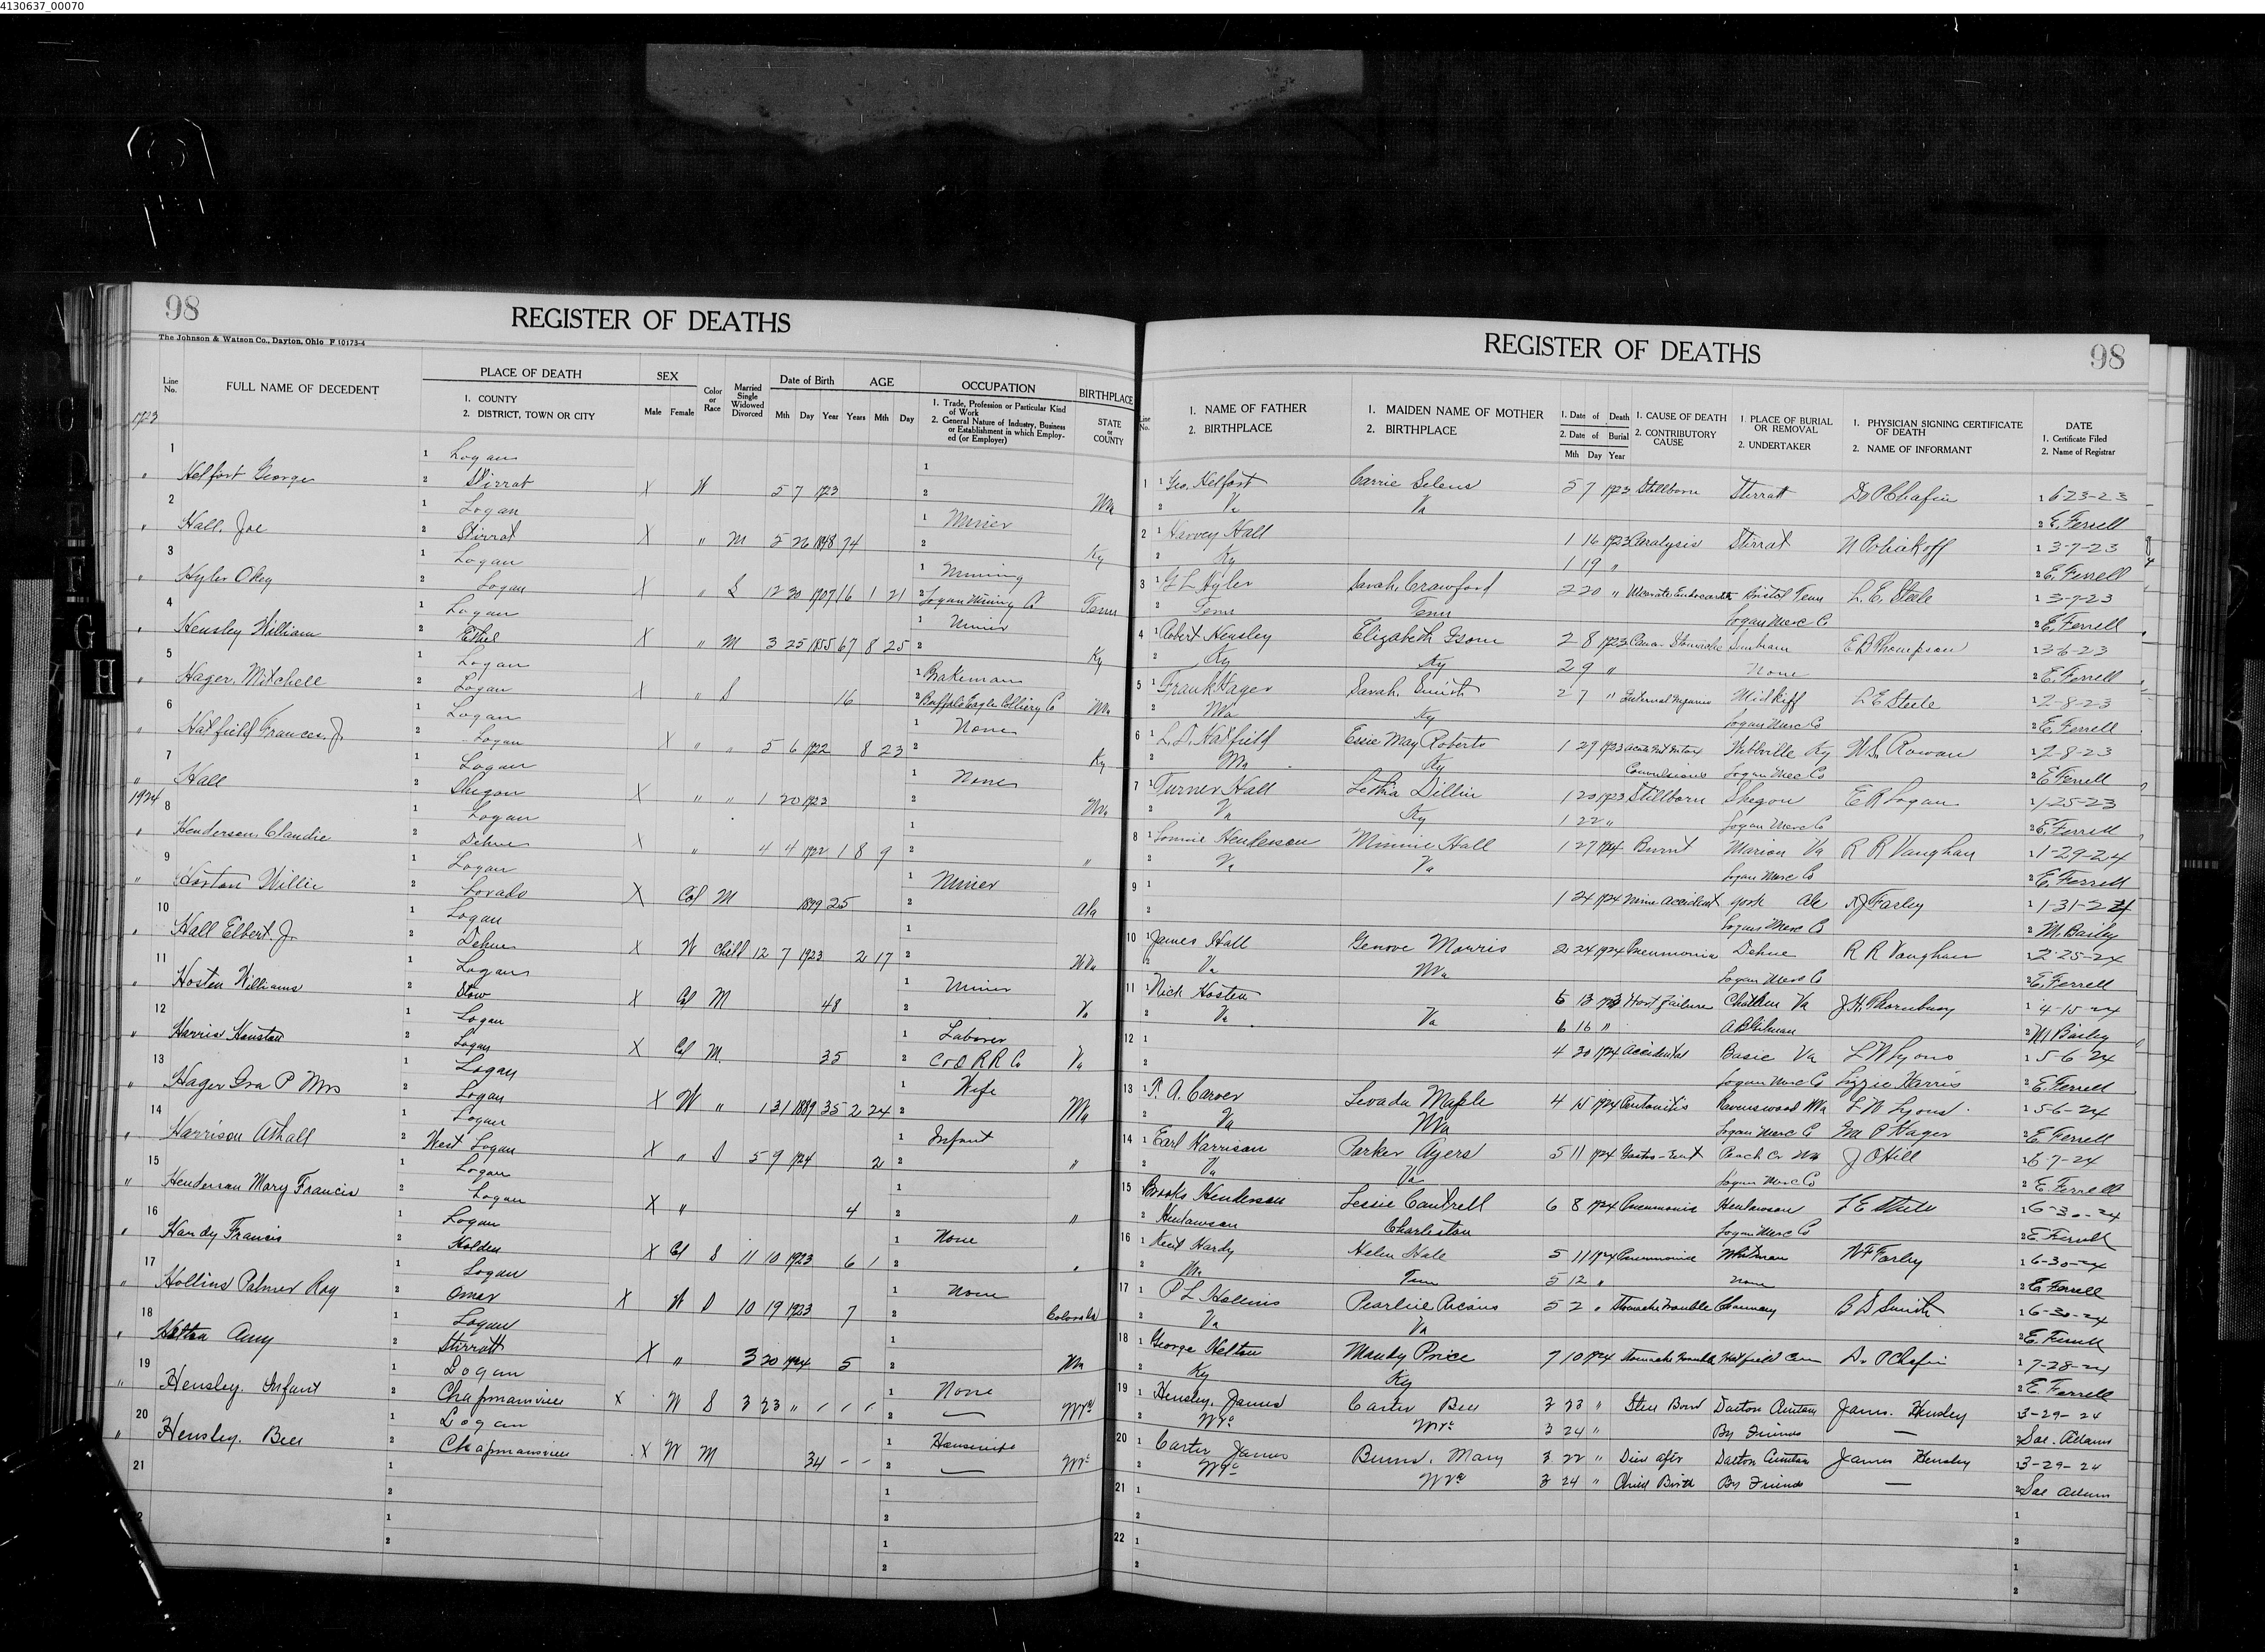 4130637_00070
98
REGISTER OF DEATHS
The Johnson & Watson Co., Dayton, Ohio F 10173-4
Line No. FULL NAME OF DECEDENT PLACE OF DEATH 1. COUNTY 2. DISTRICT, TOWN OR CITY SEX Male Female Color or Race Married Single Widowed Divorced Date of Birth Mth Day Year AGE Years Mth Day OCCUPATION 1. Trade, Profession or Particular Kind of Work 2. General Nature of Industry, Business or Establishment in which Employed (or Employer) BIRTHPLACE STATE or COUNTY
1923
1 Helfort George 1 Logan 2 Stirrat X W 5 7 1923 1 2 Wva
2 Hall, Joe 1 Logan 2 Stirrat X " M 5 26 1848 74 1 Miner 2 Ky
3 Hyler Okey 1 Logan 2 Logan X " S 12 30 1907 16 1 21 1 Mining 2 Logan Mining Co Tenn
4 Hensley William 1 Logan 2 Ethel X " M 3 25 1855 67 8 25 1 Miner 2 Ky
5 Hager, Mitchell 1 Logan 2 Logan X " S 16 1 Brakeman 2 Buffalo Eagle Colliery Co Wva
6 Hatfield Frances, J. 1 Logan 2 Logan X " " 5 6 1922 8 23 1 None 2 Ky
7 Hall 1 Logan 2 Shegon X " " 1 20 1923 1 None 2 Wva
1924
8 Henderson, Claudie 1 Logan 2 Dehue X " 4 4 1922 1 8 9 1 2 "
9 Horton Willie 1 Logan 2 Lorado X Col M 1899 25 1 Miner 2 Ala
10 Hall Elbert J. 1 Logan 2 Dehue X W Child 12 7 1923 2 17 1 2 WVa
11 Hosten Williams 1 Logan 2 Stow X Col M 48 1 Miner 2 Va
12 Harris Houston 1 Logan 2 Logan X Col M 35 1 Laborer 2 C & O R R Co Va
13 Hager Ira P Mrs 1 Logan 2 Logan X W " 1 31 1889 35 2 24 1 Wife 2 Wva
14 Harrison Athall 1 Logan 2 West Logan X " S 5 9 1924 2 1 Infant 2 "
15 Henderson Mary Francis 1 Logan 2 Logan X " 4 1 2 "
16 Handy Francis 1 Logan 2 Holden X Col S 11 10 1923 6 1 1 None 2 "
17 Hollins Palmer Roy 1 Logan 2 Omar X W S 10 19 1923 7 1 None 2 Colorado
18 Helton Amy 1 Logan 2 Stirratt X " 3 20 1924 5 1 2 Wva
19 Hensley. Infant 1 Logan 2 Chapmanville X W S 3 23 " 1 None 2 — WVa
20 Hensley. Bell 1 Logan 2 Chapmanville X W M 34 - - 1 Housewife 2 — WVa
21 1 2
REGISTER OF DEATHS
98
Line No. 1. NAME OF FATHER 2. BIRTHPLACE 1. MAIDEN NAME OF MOTHER 2. BIRTHPLACE 1. Date of Death 2. Date of Burial Mth Day Year 1. CAUSE OF DEATH 2. CONTRIBUTORY CAUSE 1. PLACE OF BURIAL OR REMOVAL 2. UNDERTAKER 1. PHYSICIAN SIGNING CERTIFICATE OF DEATH 2. NAME OF INFORMANT DATE 1. Certificate Filed 2. Name of Registrar
1 1 Geo. Helfort Carrie 5 7 1923 Stillborn Stirratt Dr P Chafin 1 6-23-23
2 Va Va 2 E. Ferrell
2 1 Harvey Hall 1 16 1923 Paralysis Stirrat N Poliakoff 1 3-7-23
2 Ky 1 19 " 2 E. Ferrell
3 1 G L Hyler Sarah Crawford 2 20 " Ulcerate Endocarditis Bristol Tenn L. E. Steele 1 3-7-23
2 Tenn Tenn Logan Merc Co 2 E. Ferrell
4 1 Robert Hensley Elizabeth Isom 2 8 1923 E B Thompson 1 3-6-23
2 Ky Ky 2 9 " None 2 E. Ferrell
5 1 Frank Hager Sarah Smith 2 7 " External Injuries Midkiff L E Steele 1 2-8-23
2 Wva Ky Logan Merc Co 2 E Ferrell
6 1 Hatfield Essie May Roberts 1 29 1923 Webbville Ky W. S. Rowan 1 2-8-23
2 Wva Ky Convulsions Logan Merc Co 2 E Ferrell
7 1 Turner Hall Lethia Dillin 1 20 1923 Stillborn Shegon E R Logan 1 1-25-23
2 Va Ky 1 22 " Logan Merc Co 2 E. Ferrell
8 1 Lonnie Henderson Minnie Hall 1 27 1924 Burnt Marion Va R R Vaughan 1 1-29-24
2 Va Va Logan Merc Co 2 E. Ferrell
9 1 1 24 1924 Mine Accident York Ala Farley 1 1-31-24
2 Logan Merc Co 2 M. Bailey
10 1 James Hall Genove Morris 2 24 1924 Pneumonia Dehue R R Vaughan 1 2-25-24
2 Va Wva Logan Merc Co 2 E. Ferrell
11 1 Nick Hosten 6 13 1923 Hart failure Va J. H. Thornbury 1 4-15-24
2 Va Va 6 16 " 2 M Bailey
12 1 4 30 1924 Accidental Basic Va L W Lyons 1 5-6-24
2 Logan Merc Co Lizzie Harris 2 E. Ferrell
13 1 T. A. Carver Levada Maple 4 15 1924 Peritonitis Ravenswood WVa L W Lyons. 1 5-6-24
2 Va Wva Logan Merc Co Ira P Hager 2 E Ferrell
14 1 Earl Harrison Parker Ayers 5 11 1924 Peach Cr Wva J O Hill 1 6-7-24
2 Va Va Logan Merc Co 2 E. Ferrell
15 1 Brooks Henderson Lessie Cantrell 6 8 1924 Pneumonia Henlawson L E Steele 1 6-30-24
2 Henlawson Charleston Logan Merc Co 2 E. Ferrell
16 1 Kent Hardy Helen Hale 5 11 1924 Pneumonia Whitman Farley 1 6-30-24
2 Wva Tenn 5 12 " None 2 E Ferrell
17 1 P L Hollins Pearlie 5 2 " Stomache Trouble Chauncy B D Smith 1 6-30-24
2 Va Va 2 E. Ferrell
18 1 George Helton Mandy Price 7 10 1924 Stomache Trouble Hatfield Cem Dr P Chafin 1 7-28-24
2 Ky Ky 2 E. Ferrell
19 1 Hensley, James Carter Bell 3 23 " Still Born Dalton James. Hensley 3-29-24
2 WVa WVa 3 24 " By Friends — 2 Sol. Adams
20 1 Carter James Burns. Mary 3 22 " Died after Dalton James Hensley 3-29-24
2 WVa WVa 3 24 " Child Birth By Friends — 2 Sol Adams
21 1 2
22 1 2